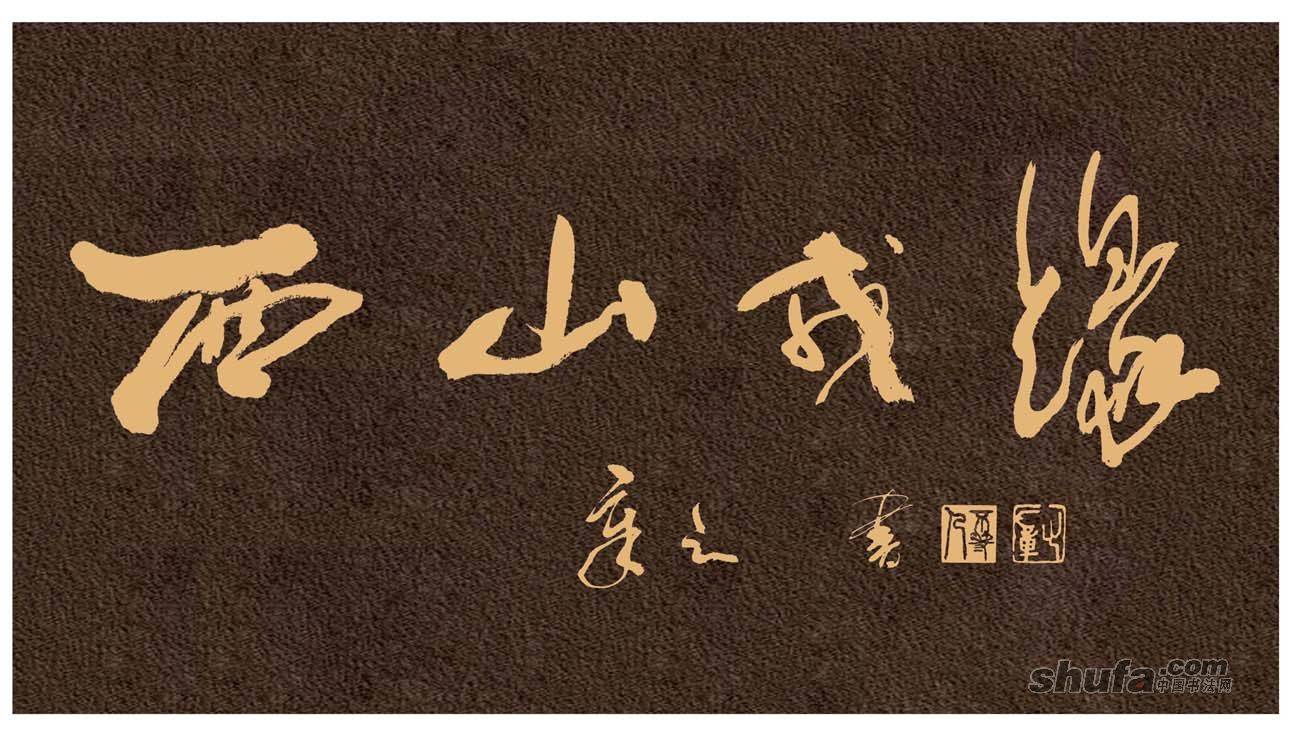 西山緣
章之 书
shufa.com
中国书法网